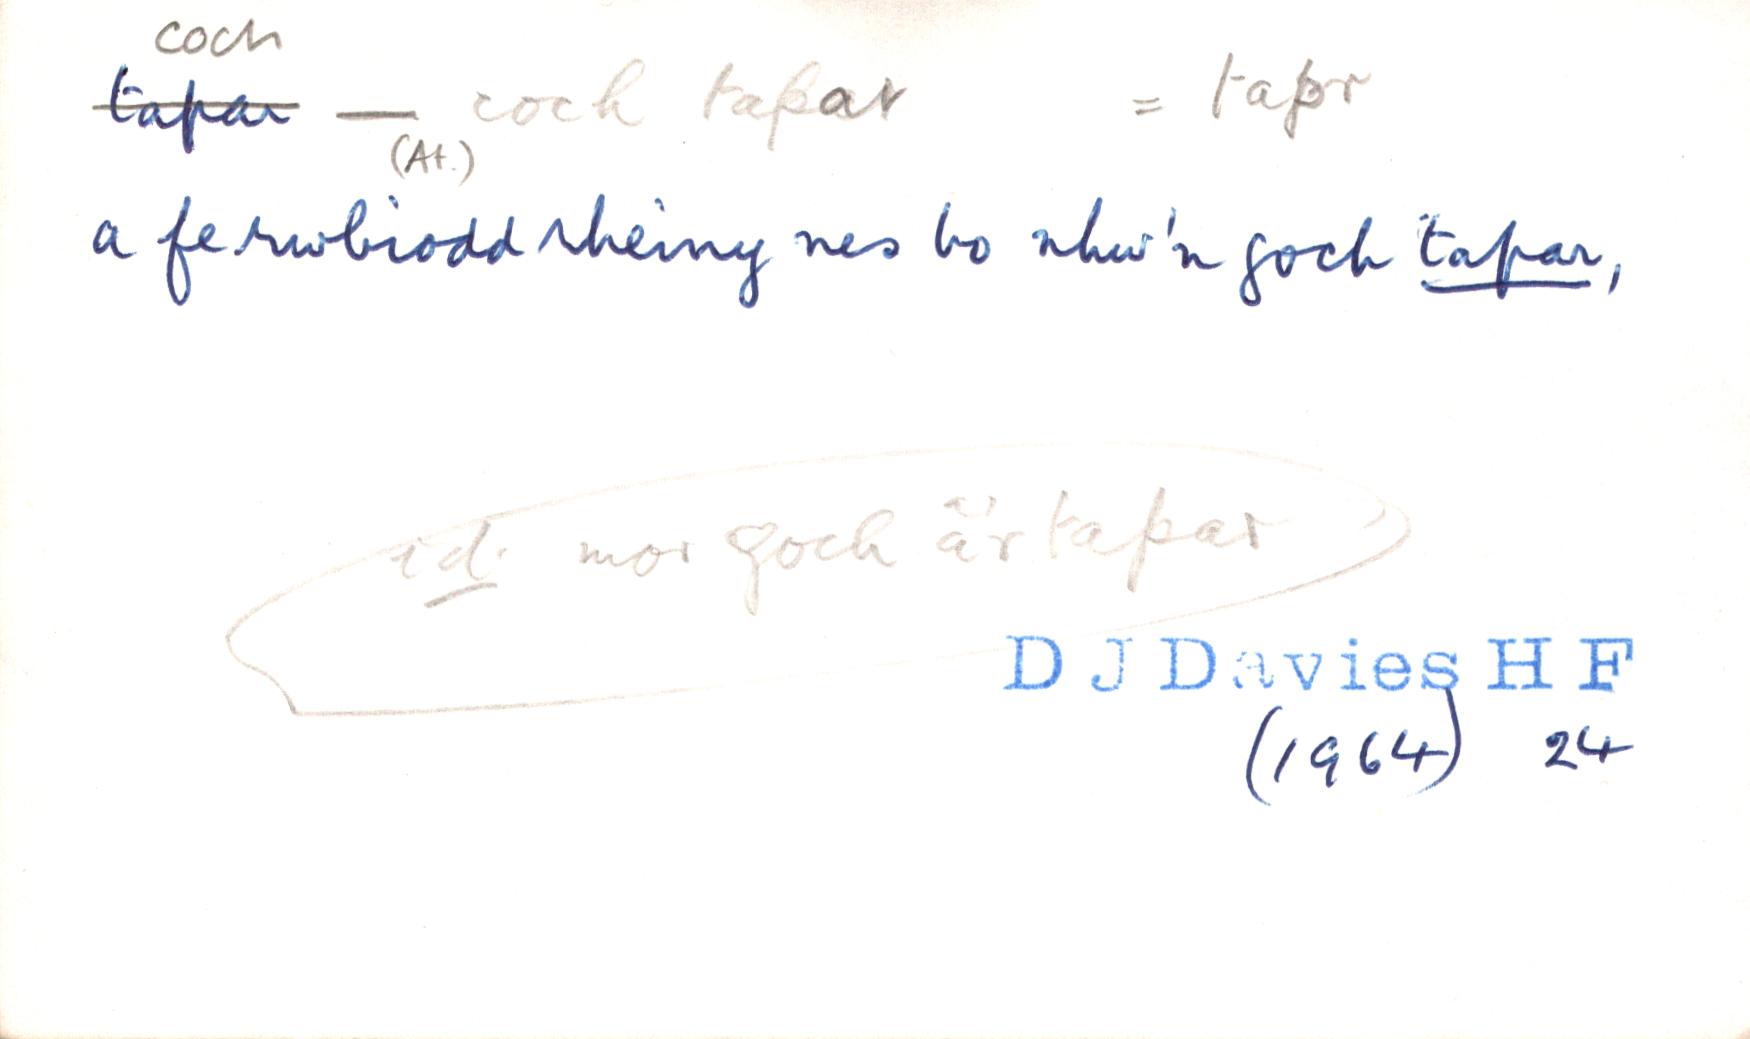 coch
tapar — coch tapar = tapr
(At.)
a fe rwbiodd rheiny nes bo nhw'n goch tapar,
id. mor goch â'r tapar
D J Davies H F
(1964) 24